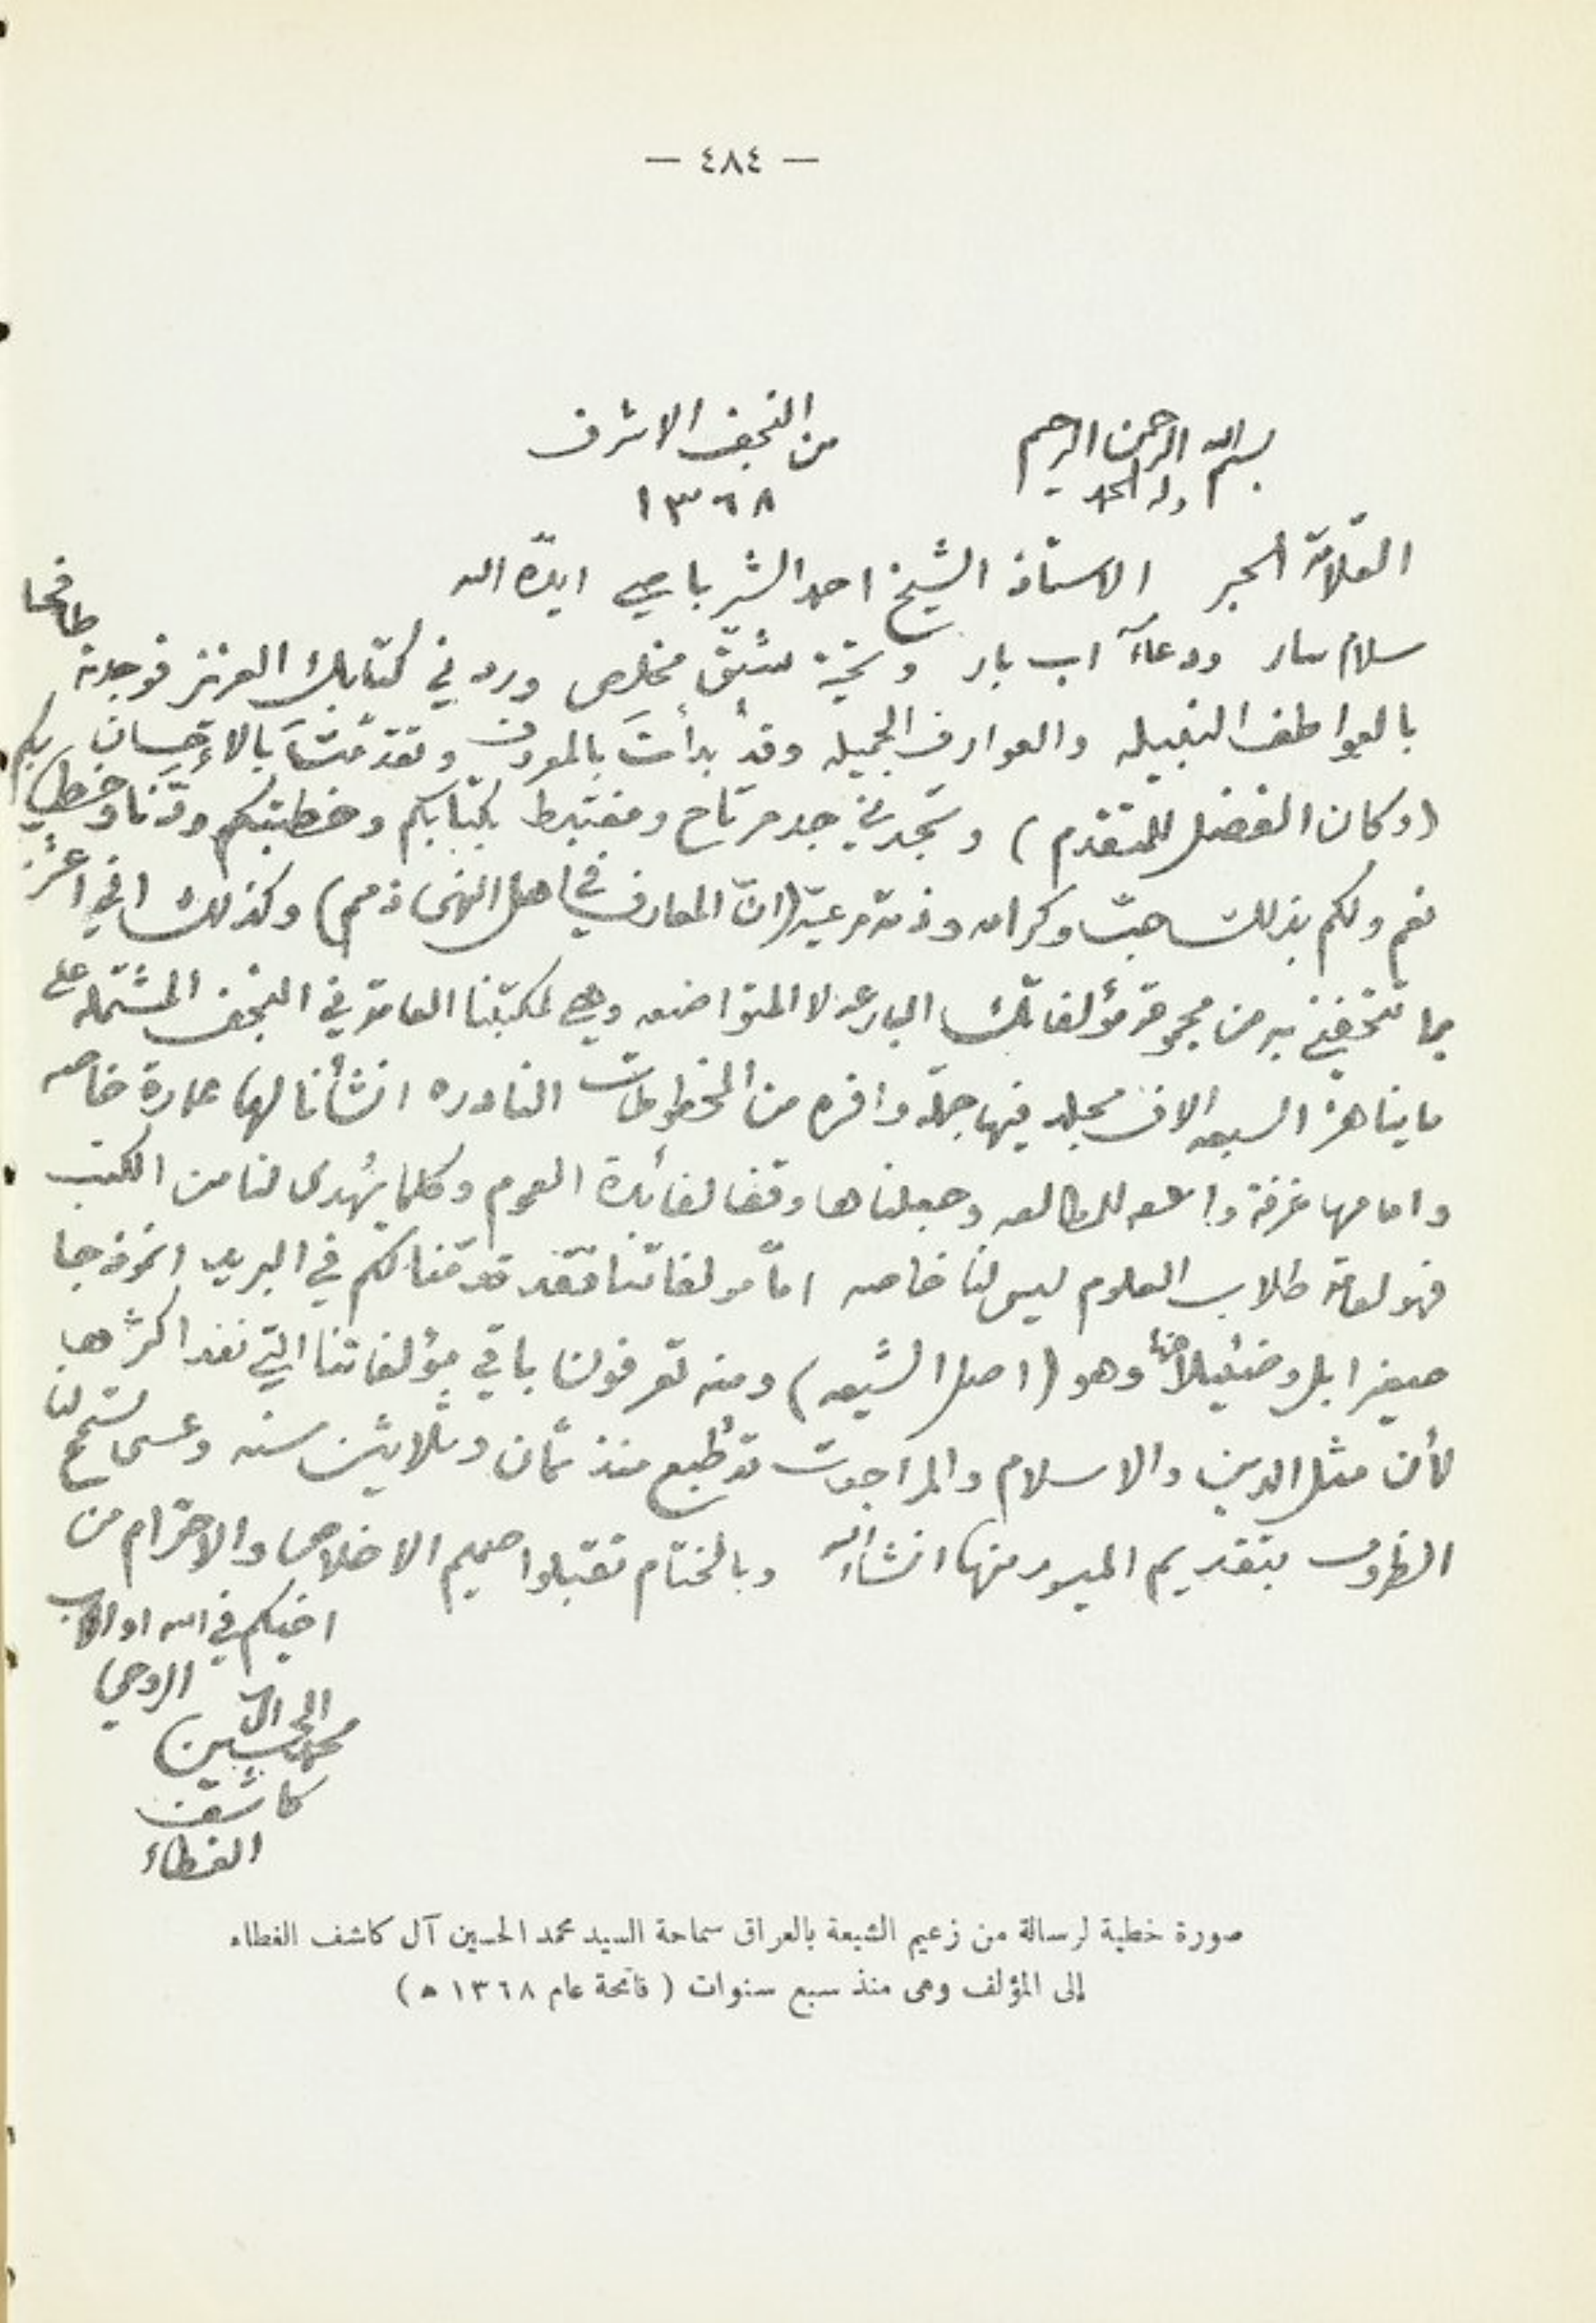 — ٤٨٤ —
بسم الله الرحمن الرحيم
وله الحمد
من النجف الاشرف
١٣٦٨
العلّامة الحبر الاستاذ الشيخ احمد الشرباصي ايدّه الله
سلام سار ودعاءَ اب بار وتحية شيّق مخلص ورد ني كتابك العزيز فوجدته طافحا
بالعواطف النبيله والعوارف الجميله وقد بدأتَ بالمعروف وتقدمتَ بالاحسان
(وكان الفضل للمتقدم) وتجدني جد مرتاح ومغتبط بكتابكم وخطبتكم ودّنا وخطبي بكم
نعم ولكم بذلك حبّ وكرامه وذمة مرعيّة (انّ المعارف في اهل النهى ذمم) وكذلك اني اعتز
بما تتحفني به من مجموعة مؤلفاتك البارعه لا المتواضعه وهي لمكتبتنا العامة في النجف المشتمله على
ما يناهز السبعه الاف مجلد فيها جملة وافره من المخطوطات النادره انشأنا لها عمارة خاصه
وامامها غرفة واسعه للمطالعه وجعلناها وقفا لفائدة العموم وكلما يُهدى لنا من الكتب
فهو لعامة طلاب العلوم ليس لنا خاصه امّا مولفاتنا فقد قدّمنا لكم في البريد انموذجا
صغيرا بل وضئيلاً منها وهو (اصل الشيعه) ومنه تعرفون باقي مؤلفاتنا التي نفد اكثرها
لأن مثل الدين والاسلام والمراجعات قد طبع منذ ثمان وثلاثين سنه وعسى تسمح لنا
الظروف بتقديم الميسور منها انشاء الله وبالختام تقبلوا صميم الاخلاص والاحترام من
اخيكم في الله او الاب
الروحي
محمد الحسين آل
كاشف
الغطاء
صورة خطية لرسالة من زعيم الشيعة بالعراق سماحة السيد محمد الحسين آل كاشف الغطاء
إلى المؤلف وهى منذ سبع سنوات ( فاتحة عام ١٣٦٨ ه )